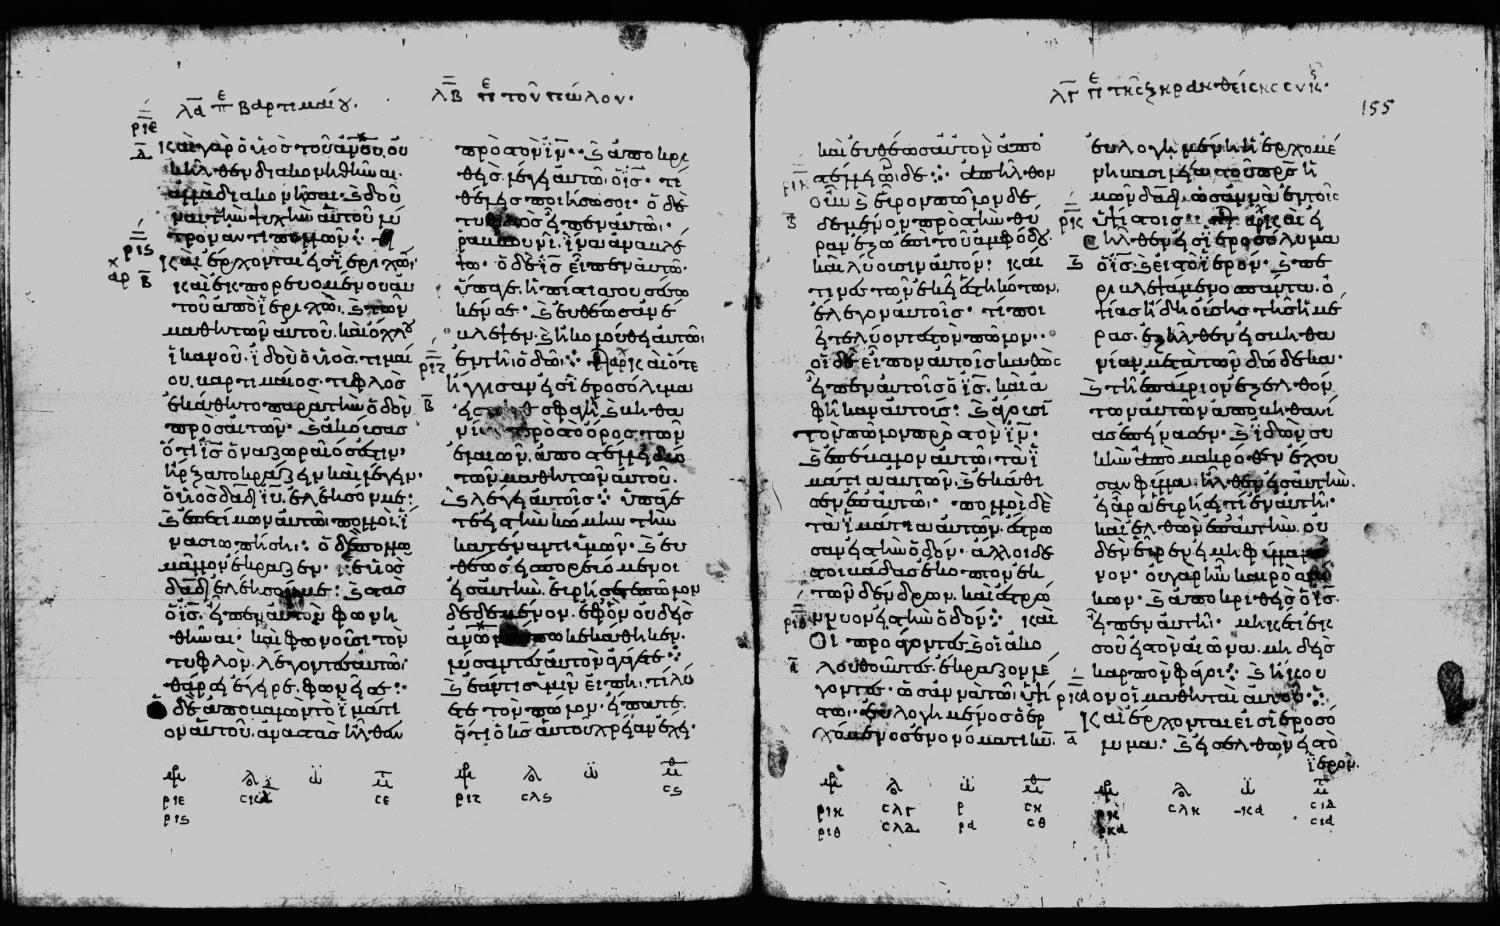 λα πε βαρτιμαίου·
καὶ γὰρ ὁ υἱὸς τοῦ ἀνου· οὐ
κ ἦλθεν διακονηθῆναι·
ἀλλὰ διακονῆσαι· καὶ δοῦ
ναι τὴν ψυχὴν αὐτοῦ λύ
τρον ἀντι πολλῶν:
Καὶ ἔρχονται εἰς ἱεριχώ·
καὶ ἐκπορευομένου αὐ
τοῦ ἀπὸ ἱεριχώ· καὶ τῶν
μαθητῶν αὐτοῦ· καὶ ὄχλου
ἱκανοῦ· ἰδοὺ ὁ υἱὸς τιμαί
ου. βαρτιμαῖος· τυφλὸς
ἐκάθητο παρὰ τὴν ὁδὸν
προσαιτῶν· καὶ ἀκούσας
ὅτι ις ὁ ναζωραῖός ἐστιν·
ἤρξατο κράζειν καὶ λέγειν·
ὁ υἱὸς δαδ ιυ ἐλέησόν με:
καὶ ἐπετίμων αὐτῶ πολλοὶ ἵ
να σιωπήση: ὁ δὲ πολλῶ
μᾶλλον ἔκραζεν· υἱὸς
δαδ ἐλέησόν με: καὶ στὰς
ὁ ις. εἶπεν αὐτὸν φωνη
θῆναι· καὶ φωνοῦσι τὸν
τυφλὸν. λέγοντες αὐτῶ·
θάρσει ἔγειρε. φωνεῖ σε:
ὁ δὲ ἀποβαλὼν τὸ ἱμάτι
ον αὐτοῦ. ἀναστὰς ἦλθεν
ριε σκα σε
ρις
λβ πε τοῦ πώλου·
πρὸς τὸν ιν· καὶ ἀποκρι
θεὶς λέγει αὐτῶ ὁ ις· τί
θέλεις ποιήσω σοι· ὁ δὲ
τυφλὸς εἶπεν αὐτῶ·
ραββουνὶ. ἵνα ἀναβλέ
ψω· ὁ δὲ ις εἶπεν αὐτῶ·
ὕπαγε. ἡ πίστις σου σέσω
κέν σε· καὶ εὐθέως ἀνέ
βλεψεν. καὶ ἠκολούθει αὐτῶ
ἐν τῆ ὁδῶ: Καὶ ὅτε
ἤγγισαν εἰς ἱεροσόλυμα
εἰς βηθσφαγὴ καὶ βηθα
νί πρὸς τὸ ὄρος τῶν
ἐλαιῶν. ἀποστέλλει δύο
τῶν μαθητῶν αὐτοῦ.
καὶ λέγει αὐτοῖς: ὑπάγε
τε εἰς τὴν κώμην τὴν
κατέναντι ὑμῶν· καὶ εὐ
θέως εἰσπορευόμενοι
εἰς αὐτὴν. εὑρήσετε πῶλον
δεδεμένον. ἐφ ὃν οὐδεὶς
ἀνων πω κεκάθηκεν.
λύσαντες αὐτὸν ἀγάγετε:
καὶ ἐάν τις ὑμῖν εἴπη. τί λύ
ετε τὸν πῶλον. εἴπατε.
ὅτι ὁ κς αὐτοῦ χρείαν ἔχει·
ριζ σλς σς
λγ πε τῆς ξηρανθείσης συκῆς·
155
καὶ εὐθέως αὐτὸν ἀπο
στέλλει ὧδε: ἀπῆλθον
οὖν καὶ εὗρον πῶλον δε
δεμένον πρὸς τὴν θύ
ραν ἔξω ἐπὶ τοῦ ἀμφόδου.
καὶ λύουσιν αὐτόν: καί
τινες τῶν ἐκεῖ ἑστηκότων.
ἔλεγον αὐτοῖς· τί ποι
εῖτε λύοντες τὸν πῶλον·
οἱ δὲ εἶπον αὐτοῖς καθὼς
εἶπεν αὐτοῖς ὁ ις. καὶ ἀ
φῆκαν αὐτούς: καὶ ἄγουσι
τὸν πῶλον πρὸς τὸν ιν·
καὶ ἐπέβαλον αὐτῶ τὰ ἱ
μάτια αὐτῶν. καὶ ἐκάθι
σεν ἐπ αὐτῶ· πολλοὶ δὲ
τὰ ἱμάτια αὐτῶν. ἔστρω
σαν εἰς τὴν ὁδόν· ἄλλοι δὲ
στοιβάδας ἔκοπτον ἐκ
τῶν δένδρων. καὶ ἐστρώ
ννυον εἰς τὴν ὁδόν: καὶ
Οἱ προάγοντες καὶ οἱ ἀκο
λουθοῦντες. ἔκραζον λέ
γοντες. ὡσαννὰ τῶ ὑψί
στω. εὐλογημένος ὁ ἐρ
χόμενος ἐν ὀνόματι κυ.
ριη σλγ ρ ση
ριθ σλδ ρα σθ
εὐλογημένη ἡ ἐρχομέ
νη βασιλεία τοῦ πρς ἡ
μῶν δαδ. ὡσαννὰ ἐν τοῖς
ὑψίστοις καὶ εἰ
σῆλθεν εἰς ἱεροσόλυμα
ὁ ις. καὶ εἰς τὸ ἱερόν· καὶ πε
ριβλεψάμενος πάντα. ὀ
ψίας ἤδη οὔσης τῆς ἡμέ
ρας. ἐξῆλθεν εἰς βηθα
νίαν μετὰ τῶν δώδεκα.
καὶ τῆ ἐπαύριον ἐξελθόν
των αὐτῶν ἀπὸ βηθανί
ας ἐπείνασεν· καὶ ἰδὼν συ
κῆν ἀπὸ μακρόθεν ἔχου
σαν φύλλα. ἦλθεν εἰς αὐτὴν.
εἰ ἄρα εὑρήσει τι ἐν αὐτῆ·
καὶ ἐλθὼν ἐπ αὐτὴν. οὐ
δὲν εὗρεν εἰ μὴ φύλλα
νον· οὐ γὰρ ἦν καιρὸς
κων· καὶ ἀποκριθεὶς ὁ ις·
εἶπεν αὐτῆ· μηκέτι ἐκ
σοῦ εἰς τὸν αἰῶνα. μηδεὶς
καρπὸν φάγοι: καὶ ἤκου
ον οἱ μαθηταὶ αὐτοῦ:
Καὶ ἔρχονται εἰς ἱεροσό
λυμα· καὶ εἰσελθὼν εἰς τὸ
ἱερὸν.
ρκ σλη κα σιδ
ρκα σια